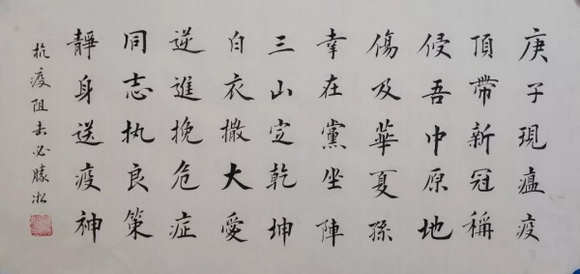 庚子現瘟疫
頂帶新冠稱
侵吾中原地
傷及華夏孫
幸在黨坐陣
三山定乾坤
白衣撒大愛
逆進挽危症
同志执良策
靜身送疫神
抗疫阻击必勝